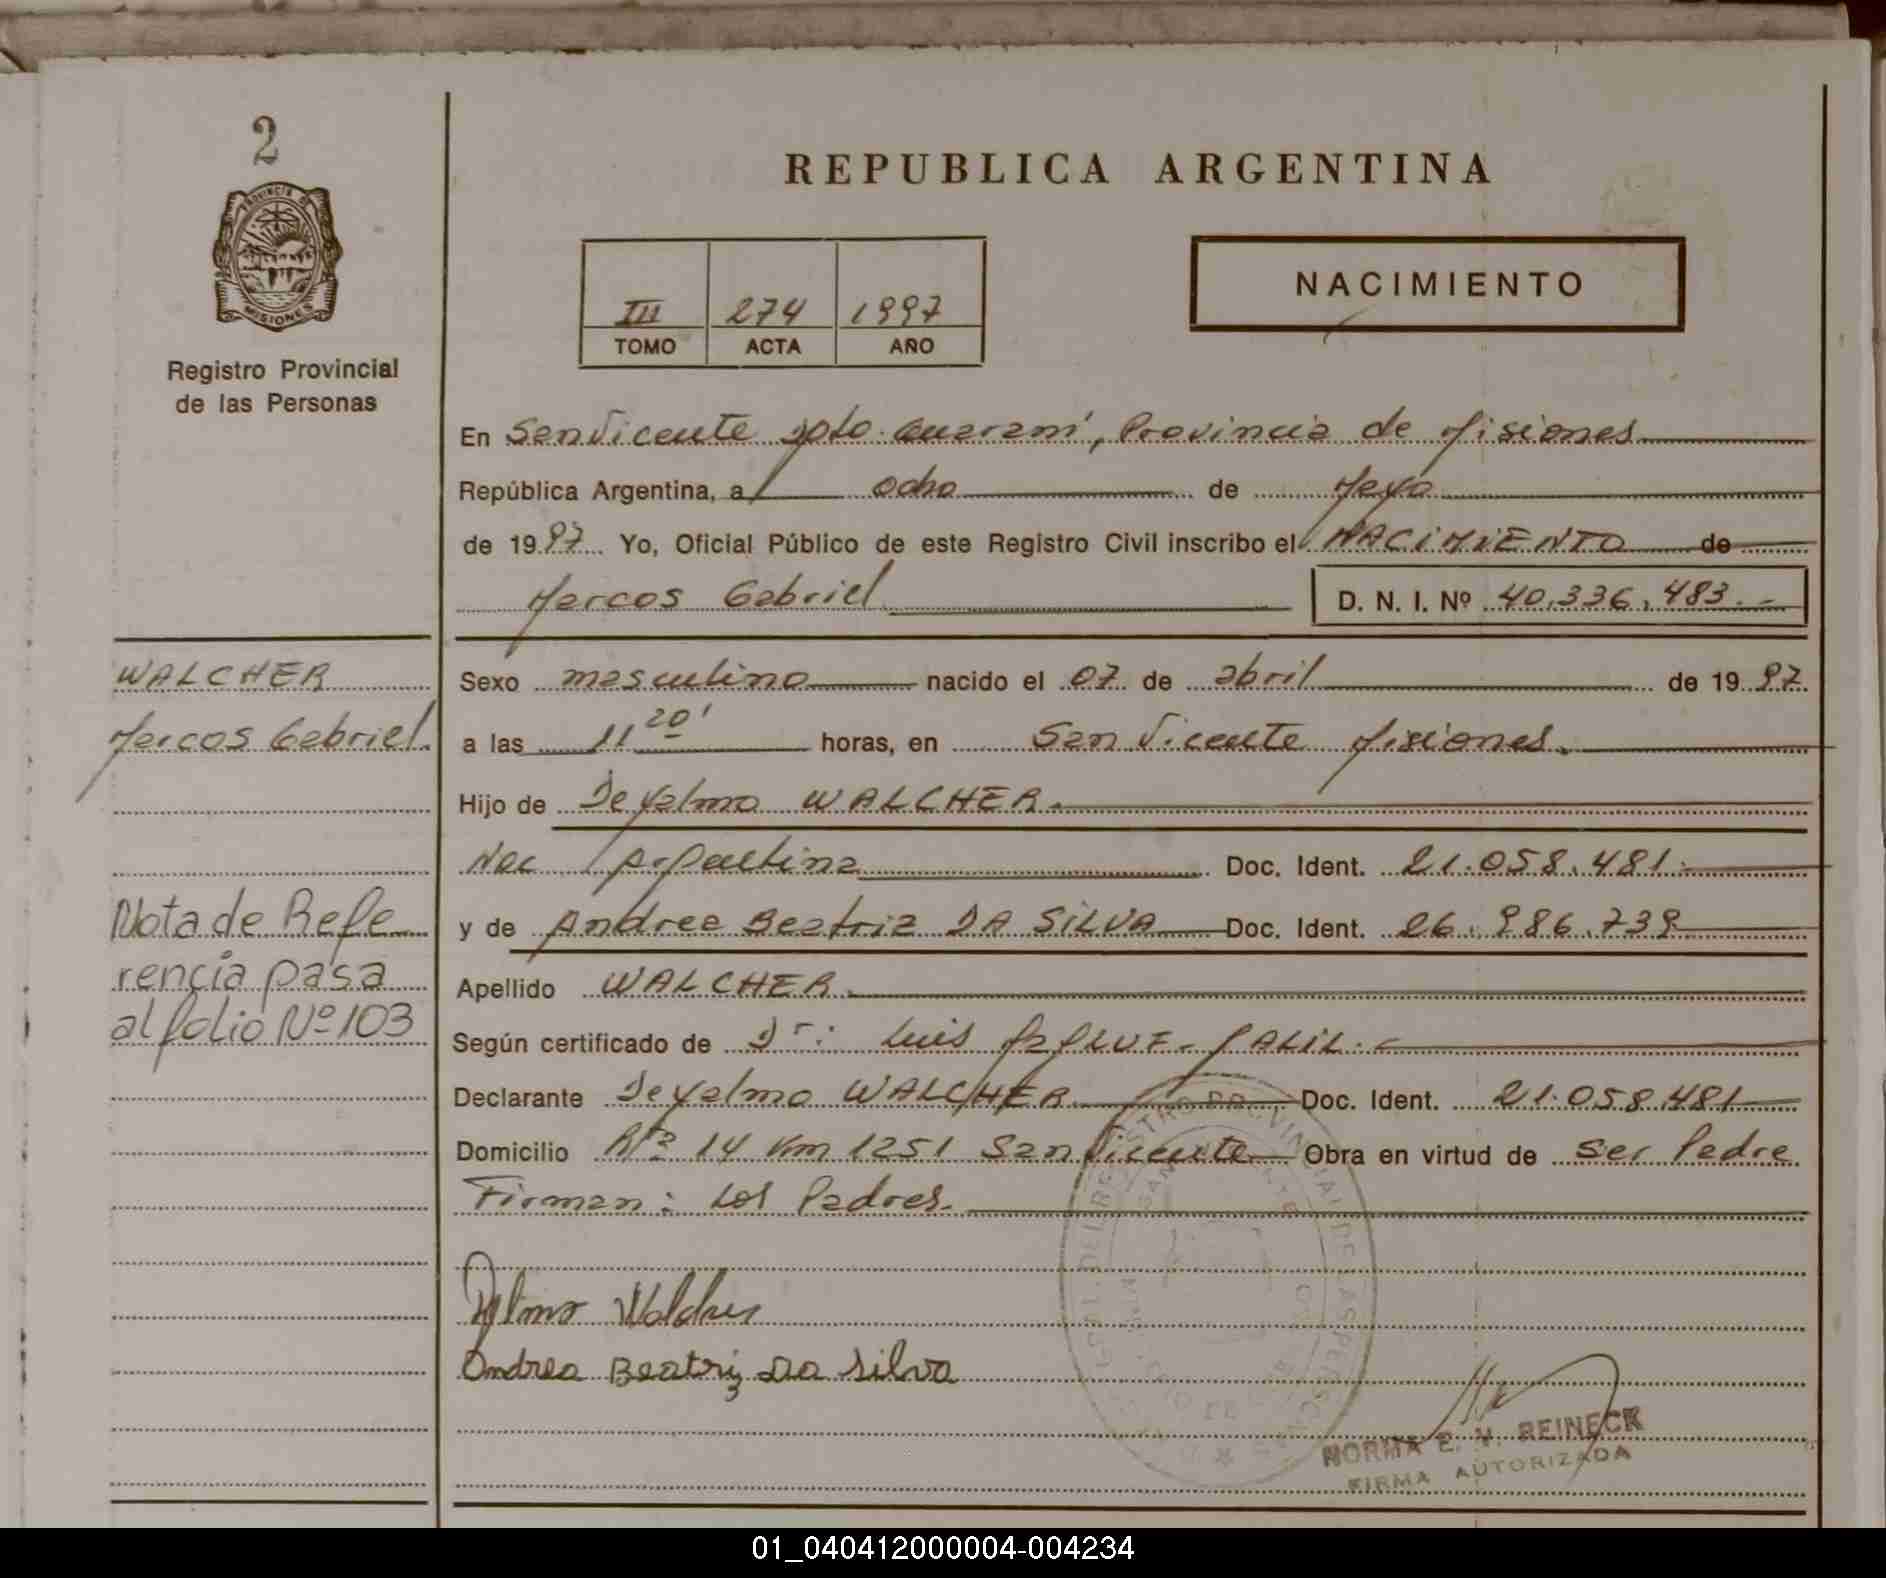 2
PROVINCIA DE
MISIONES
Registro Provincial
de las Personas
REPUBLICA ARGENTINA
III 274 1997
TOMO ACTA AÑO
NACIMIENTO
En San Vicente Dpto. Guaraní, Provincia de Misiones
República Argentina, a ocho de Mayo
de 1997 Yo, Oficial Público de este Registro Civil inscribo el NACIMIENTO de
Marcos Gabriel D. N. I. Nº 40.336.483.-
WALCHER
Marcos Gabriel.
Nota de Refe
rencia pasa
al folio Nº 103
Sexo masculino nacido el 07 de abril de 1997
a las 11 20' horas, en San Vicente Misiones.
Hijo de Deyalmo WALCHER.
Nac Argentina Doc. Ident. 21.058.481.
y de Andrea Beatriz DA SILVA Doc. Ident. 26.986.739
Apellido WALCHER.
Según certificado de Dr: Luis
Declarante Deyalmo WALCHER Doc. Ident. 21.058.481
Domicilio Rta 14 Km 1251 San Vicente Obra en virtud de ser Padre
Firman: Los Padres.
Walcher
Andrea Beatriz Da Silva
NORMA E. V. REINECK
FIRMA AUTORIZADA
01_040412000004-004234